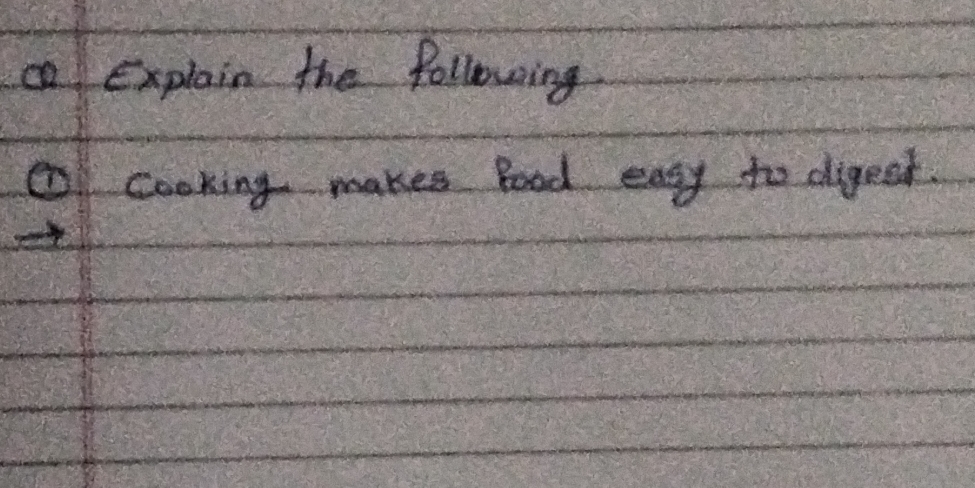 Q Explain the following
① Cooking makes food easy to digest.
→